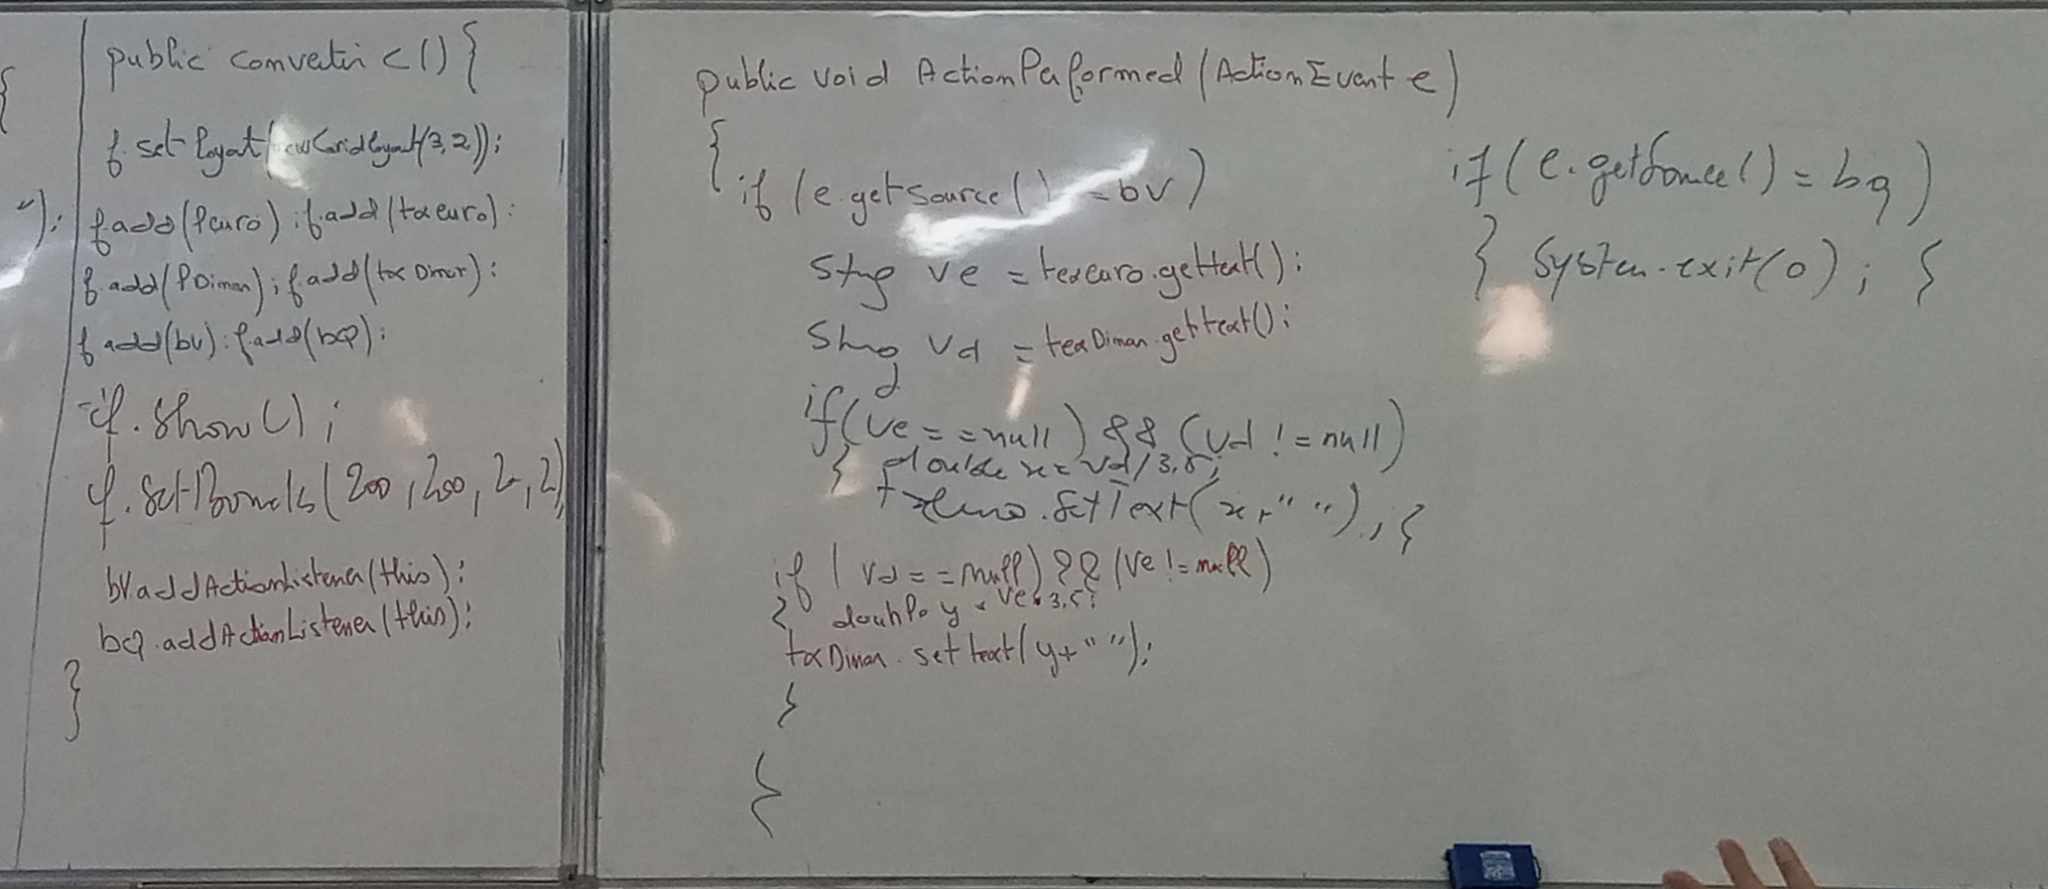 {
public convertir c() {
f.setlayout(new Gridlayout(3,2));
"); f.add(leuro); f.add(txeuro);
f.add(lDinar); f.add(txDinar);
f.add(bv); f.add(bQ);
f.show();
f.setBounds(200,200,2,2);
bV.addActionListener(this);
bQ.addActionListener(this);
}
public void ActionPerformed(ActionEvent e)
{
if (e.getsource() = bv)
String ve = texeuro.gettext();
String vd = texDinar.gettext();
if(ve==null) && (vd != null)
{ double x= vd/3,5;
txeuro.SetText(x+" "); {
if (vd==null) && (ve!=null)
{ double y = ve*3,5;
txDinar.settext(y+" ");
}
}
if(e.getSource() = bq)
} System.exit(0); {